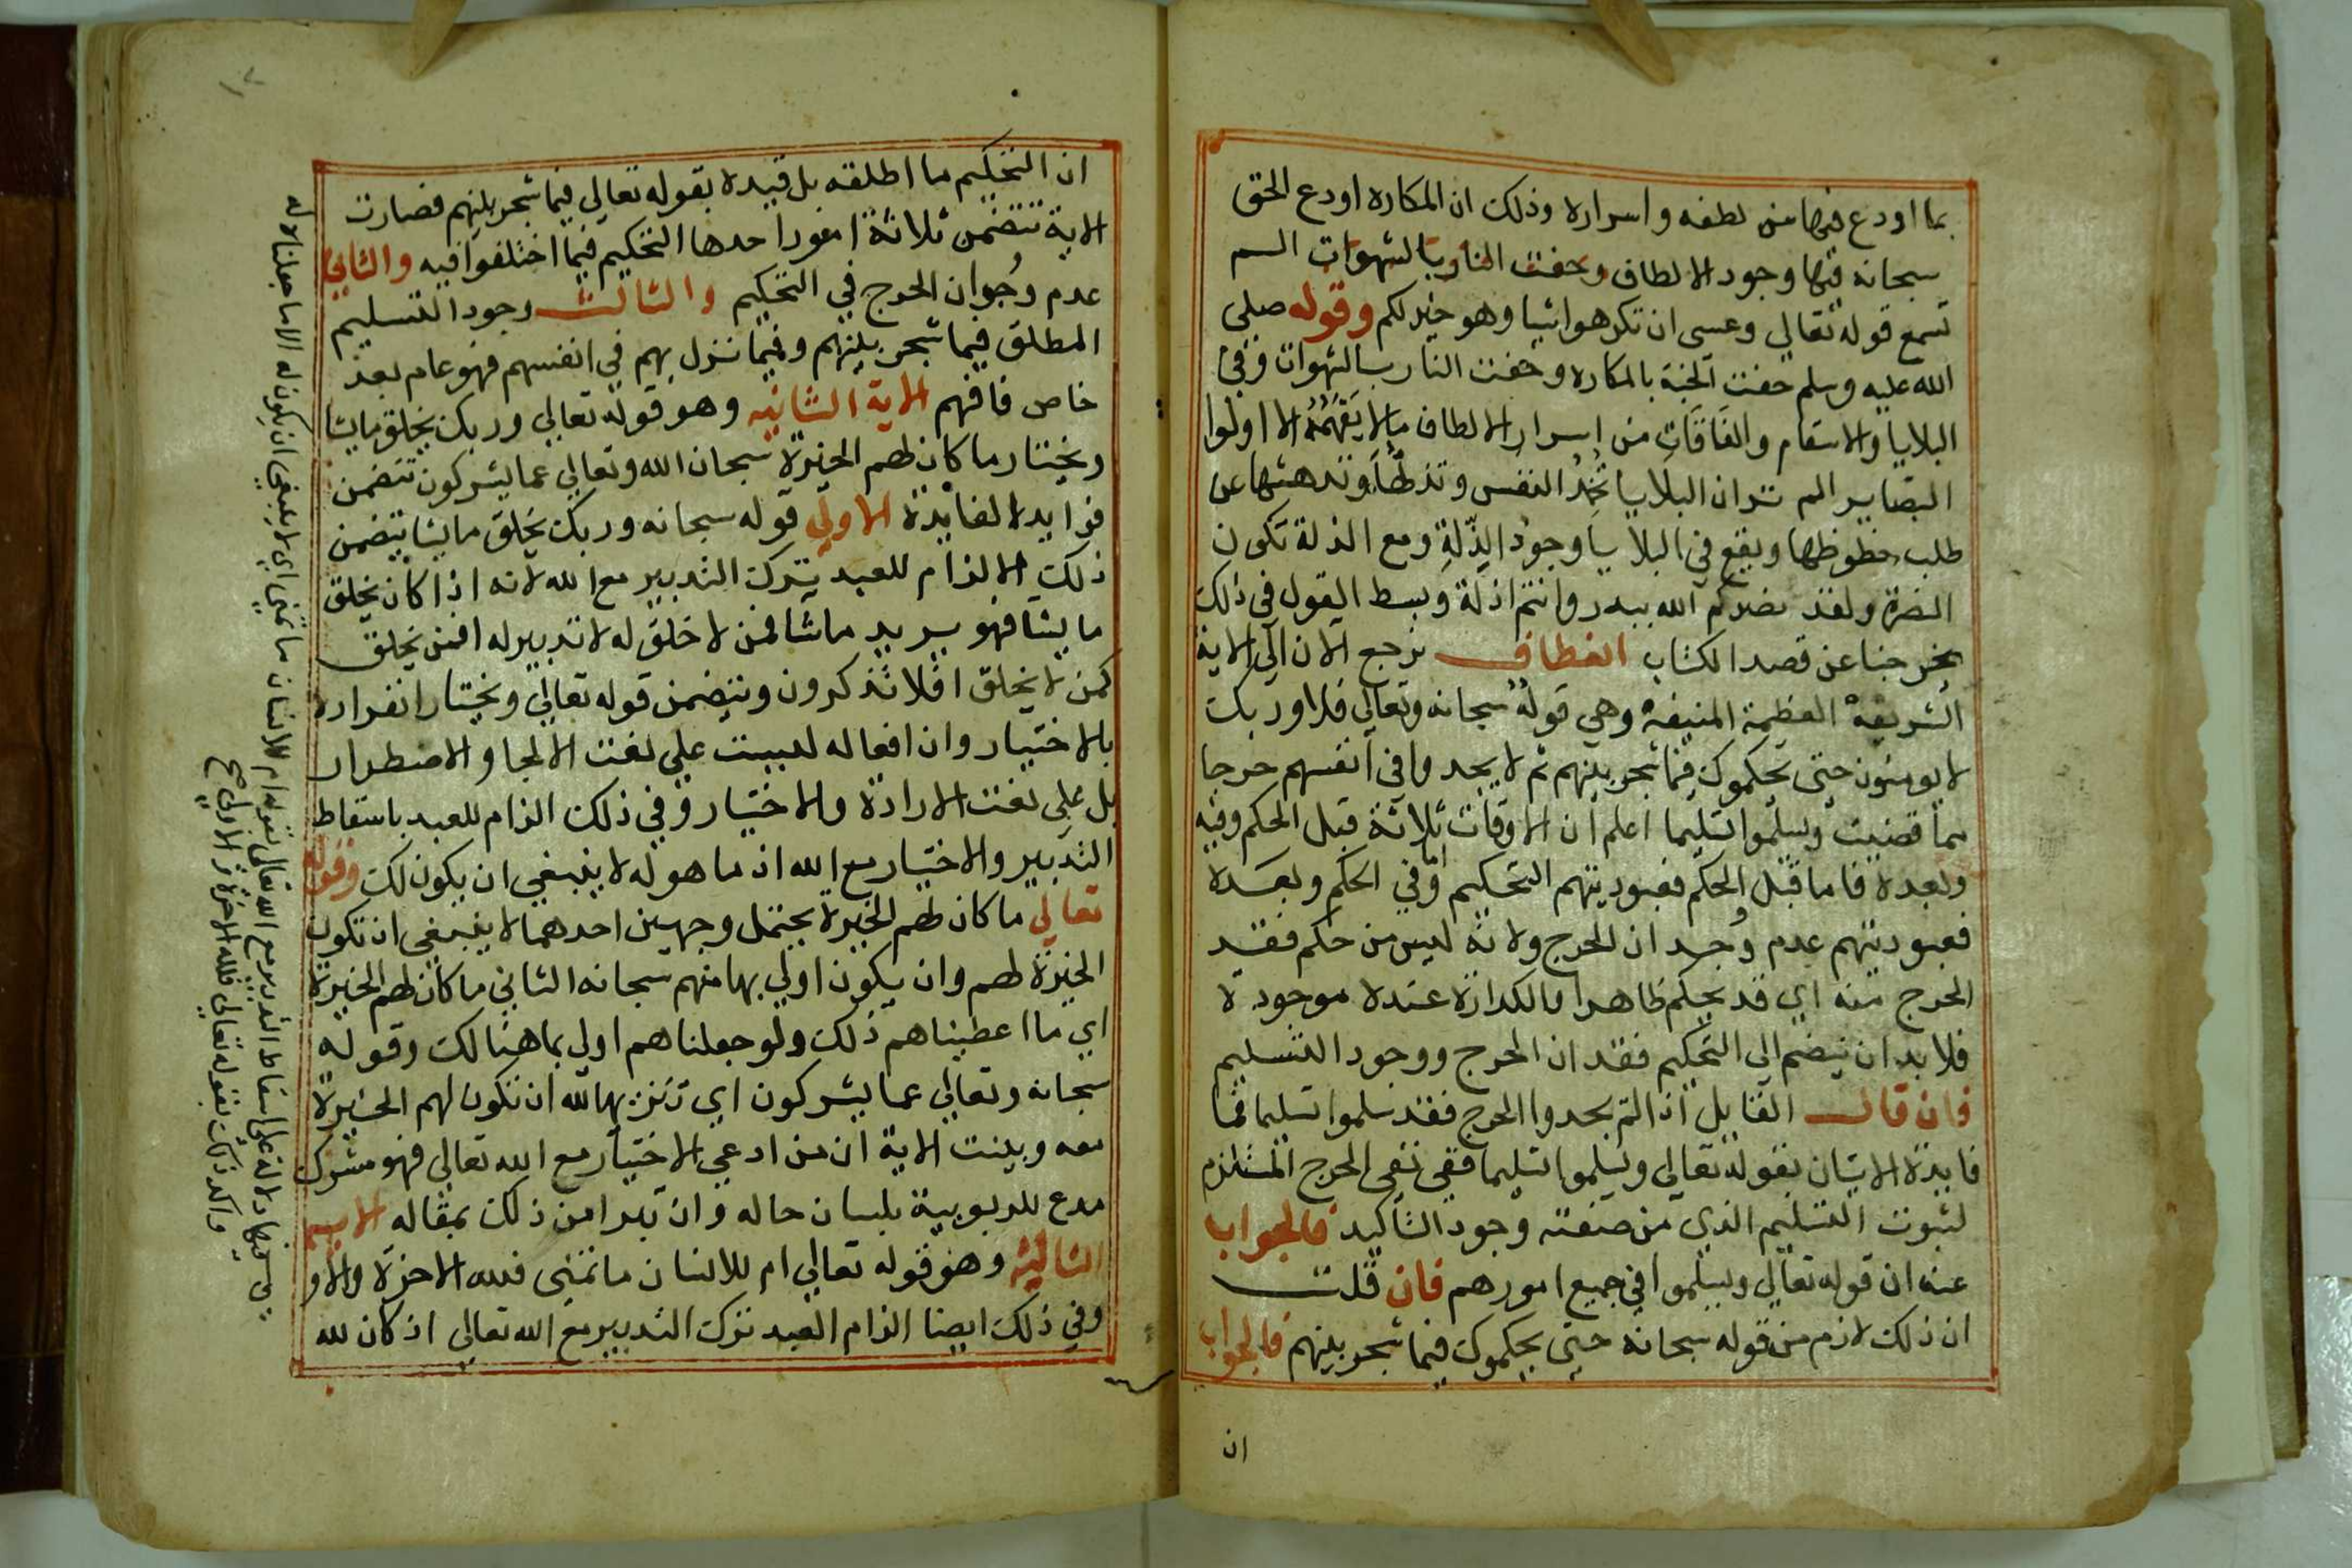 بما اودع فيها من لطفه واسراره وذلك ان المكاره اودع الحق
سبحانه فيها وجود الالطاف وحفت النار بالشهوات الم
تسمع قوله تعالي وعسى ان تكرهوا شيا وهو خير لكم وقوله صلى
الله عليه وسلم حفت الجنة بالمكاره وحفت النار بالشهوات وفي
البلايا والاسقام والفاقات من اسرار الالطاف ما لا يفهمه الا اولوا
البصاير الم تران البلايا تخمد النفس وتذلها وتدهشها عن
طلب حظوظها ويقع في البلايا وجود الذلة ومع الذلة تكون
النصرة ولقد نصركم الله ببدر وانتم اذلة وبسط القول في ذلك
يخرجنا عن قصد الكتاب انعطاف نرجع الان الي الاية
الشريفة العظيمة المنيفة وهي قوله سبحانه وتعالي فلا وربك
لا يومنون حتى يحكموك فيما شجر بينهم ثم لا يجدوا في انفسهم حرجا
مما قضيت ويسلموا تسليما اعلم ان الاوقات ثلاثة قبل الحكم وفيه
وبعده فاما قبل الحكم فعبوديتهم التحكيم واما في الحكم وبعده
فعبوديتهم عدم وجدان الحرج ولانه ليس من حكم فقد
الحرج منه اي قد يحكم ظاهرا والكدارة عنده موجودة
فلا بد ان ينضم الى التحكيم فقدان الحرج ووجود التسليم
فان قال القايل اذا لم يجدوا الحرج فقد سلموا تسليما فما
فايدة الاتيان بقوله تعالي ويسلموا تسليما ففي نفي الحرج المستلزم
لثبوت التسليم الذي من صفته وجود التاكيد فالجواب
عنه ان قوله تعالي ويسلموا في جميع امورهم فان قلت
ان ذلك لازم من قوله سبحانه حتى يحكموك فيما شجر بينهم فالجواب
ان
ان التحكيم ما اطلقه بل قيده بقوله تعالي فيما شجر بينهم فصارت
الاية تتضمن ثلاثة امورا حدها التحكيم فيما اختلفوا فيه والثاني
عدم وجوان الحرج في التحكيم والثالث وجود التسليم
المطلق فيما شجر بينهم وفيما نزل بهم في انفسهم فهو عام بعد
خاص فافهم الاية الثانيه وهو قوله تعالي وربك يخلق ما يشا
ويختار ما كان لهم الخيرة سبحان الله وتعالي عما يشركون تتضمن
فوايد الفايدة الاولي قوله سبحانه وربك يخلق ما يشا يتضمن
ذلك الالزام للعبد بترك التدبير مع الله لانه اذا كان يخلق
ما يشا فهو يريد ما شا فمن لا خلق له لا تدبير له افمن يخلق
كمن لا يخلق افلا تذكرون وتتضمن قوله تعالي ويختار انفراده
بالاختيار وان افعاله لبيست علي نعت الالجا والاضطرار
بل علي نعت الارادة والاختيار وفي ذلك الزام للعبد باسقاط
التدبير والاختيار مع الله اذ ما هو له لا ينبغي ان يكون لك وقوله
تعالي ما كان لهم الخيرة يحتمل وجهين احدهما لا ينبغي ان تكون
الخيرة لهم وان يكون اولي بها منهم سبحانه الثاني ما كان لهم الخيرة
اي ما اعطيناهم ذلك ولو جعلناهم اولي بما هنالك وقوله
سبحانه وتعالي عما يشركون اي تنزيها لله ان تكون لهم الخيرة
معه وبينت الاية ان من ادعي الاختيار مع الله تعالي فهو مشرك
مدع للربوبية بلسان حاله وان تبرا من ذلك بمقاله الاية
الثالثة وهو قوله تعالي ام للانسان ما تمنى فلله الاخرة والاو
وفي ذلك ايضا الزام العبد ترك التدبير مع الله تعالي اذ كان لله
فيها دلالة على اسقاط التدبير مع الله تعالى بقوله ام للانسان ما تمنى اي لا ينبغي ان يكون له الا ما جعلنا له
واكد ذلك بقوله تعالي فلله الاخرة والاولى صح